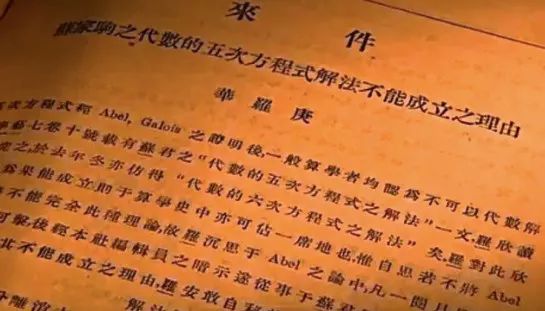 來件
蘇家駒之代數的五次方程式解法不能成立之理由
華羅庚
五次方程式經 Abel, Galois 之證明後,一般算學者均認爲不可以代數解
七卷十號載有蘇君之“代數的五次方程式之解法”一文,羅欣讀
之於去年冬亦仿得“代數的六次方程式之解法”矣,羅對此欣
爲果能成立則于算學史中亦可佔一席地也,惟自思若不將 Abel
不能完全此種理論,故羅沉思于 Abel 之論中,凡一閱月
後經本社編輯員之暗示遂從事于蘇君
其不能成立之理由,羅安敢自